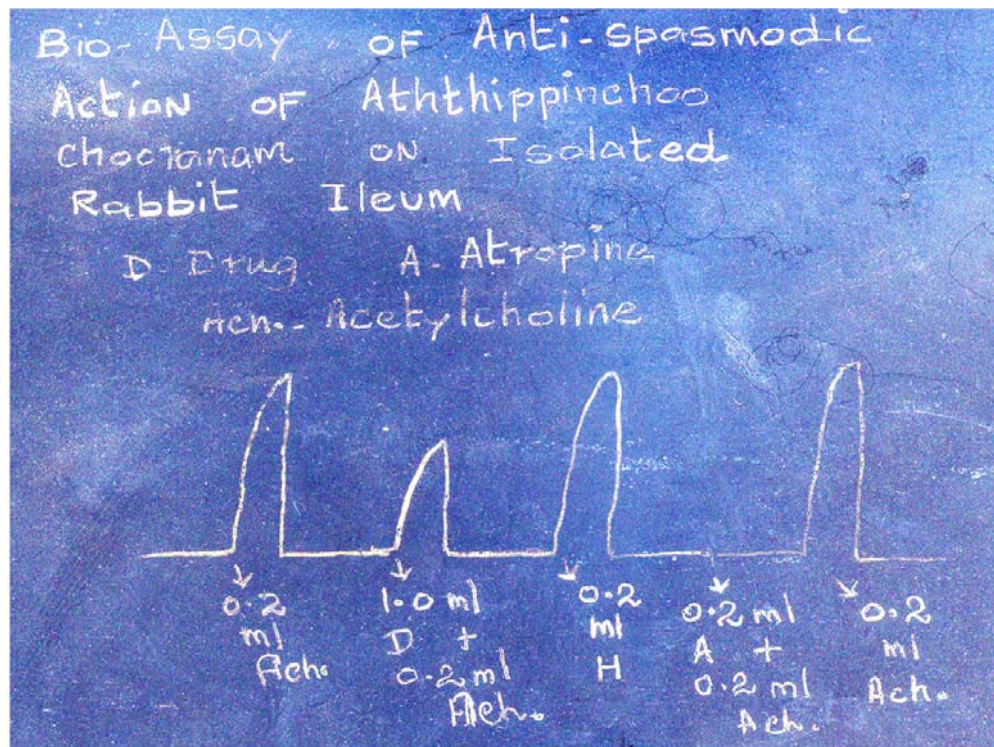 Bio-Assay of Anti-spasmodic
Action of Aththippinchoo
Chooranam on Isolated
Rabbit Ileum
D- Drug A- Atropine
Ach.- Acetylcholine
0.2
ml
Ach.
1.0 ml
D +
0.2 ml
Ach.
0.2
ml
H
0.2 ml
A +
0.2 ml
Ach.
0.2
ml
Ach.